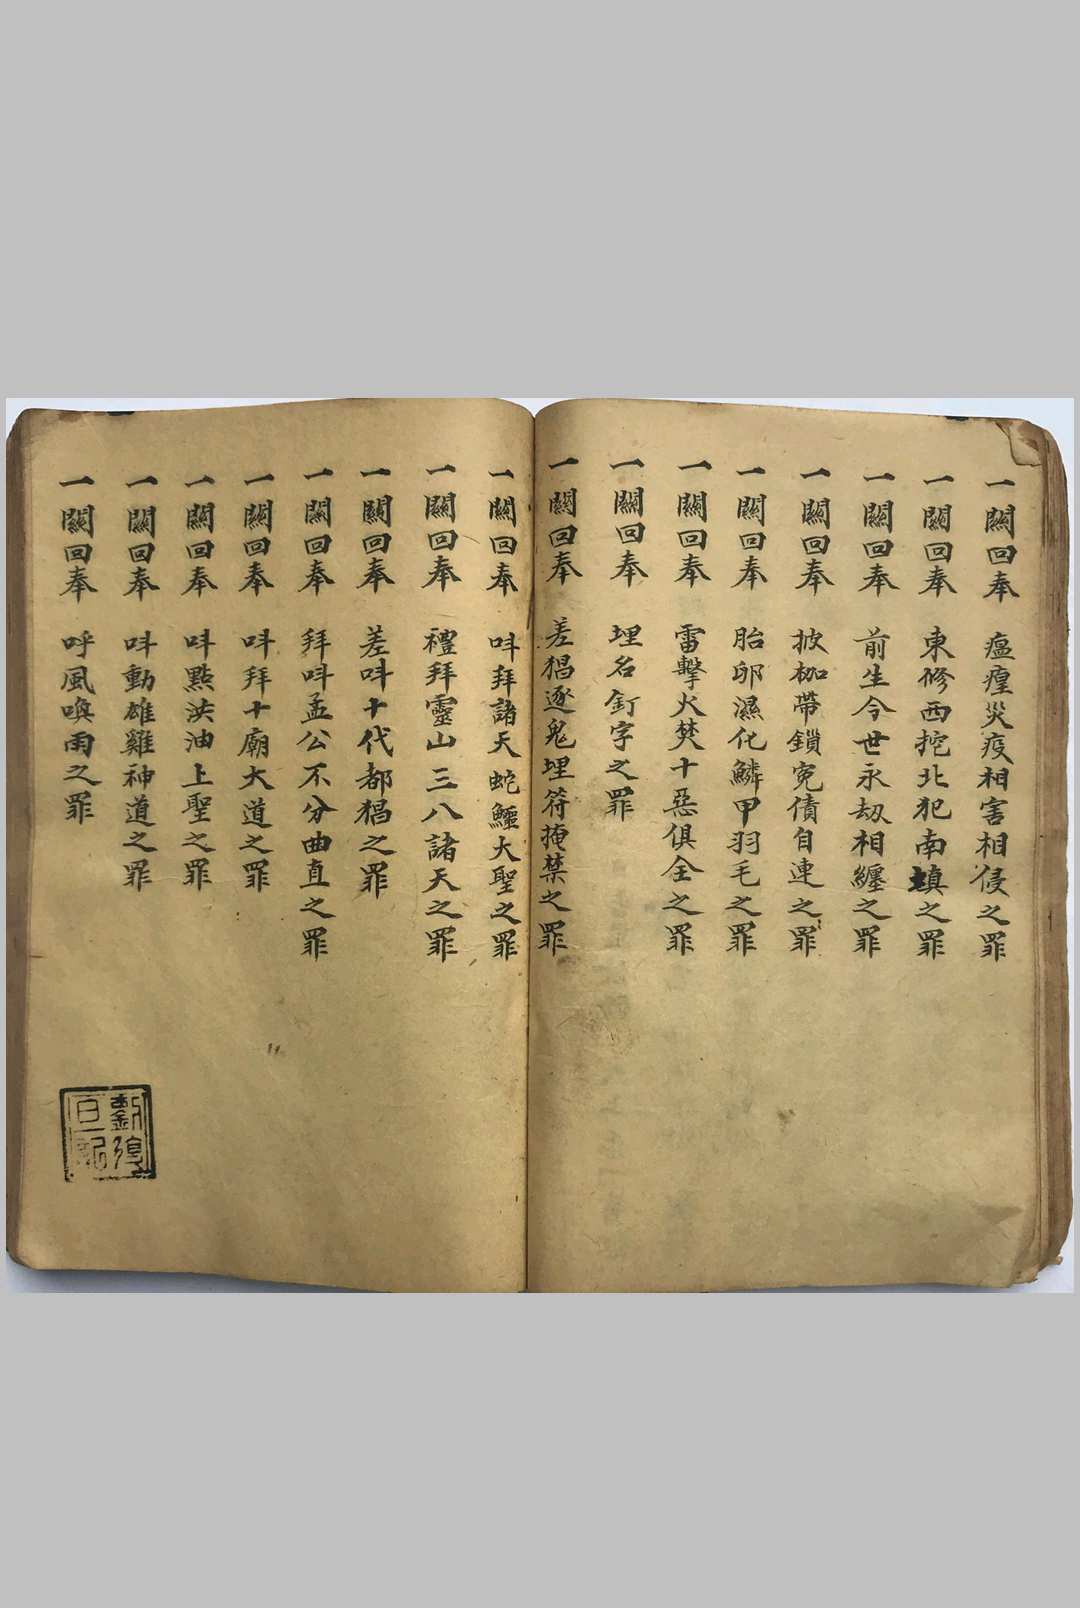 一關回奉 瘟瘽災疫相害相侵之罪
一關回奉 東修西挖北犯南填之罪
一關回奉 前生今世永刼相纏之罪
一關回奉 披枷帶鎖寃債自連之罪
一關回奉 胎卵濕化鱗甲羽毛之罪
一關回奉 雷擊火焚十惡俱全之罪
一關回奉 埋名釘字之罪
一關回奉 差猖逐鬼埋符掩禁之罪
一關回奉 呌拜諸天蛇鱷大聖之罪
一關回奉 禮拜靈山三八諸天之罪
一關回奉 差呌十代都猖之罪
一關回奉 拜呌孟公不分曲直之罪
一關回奉 呌拜十廟大道之罪
一關回奉 呌點洪油上聖之罪
一關回奉 呌動雄雞神道之罪
一關回奉 呼風喚雨之罪